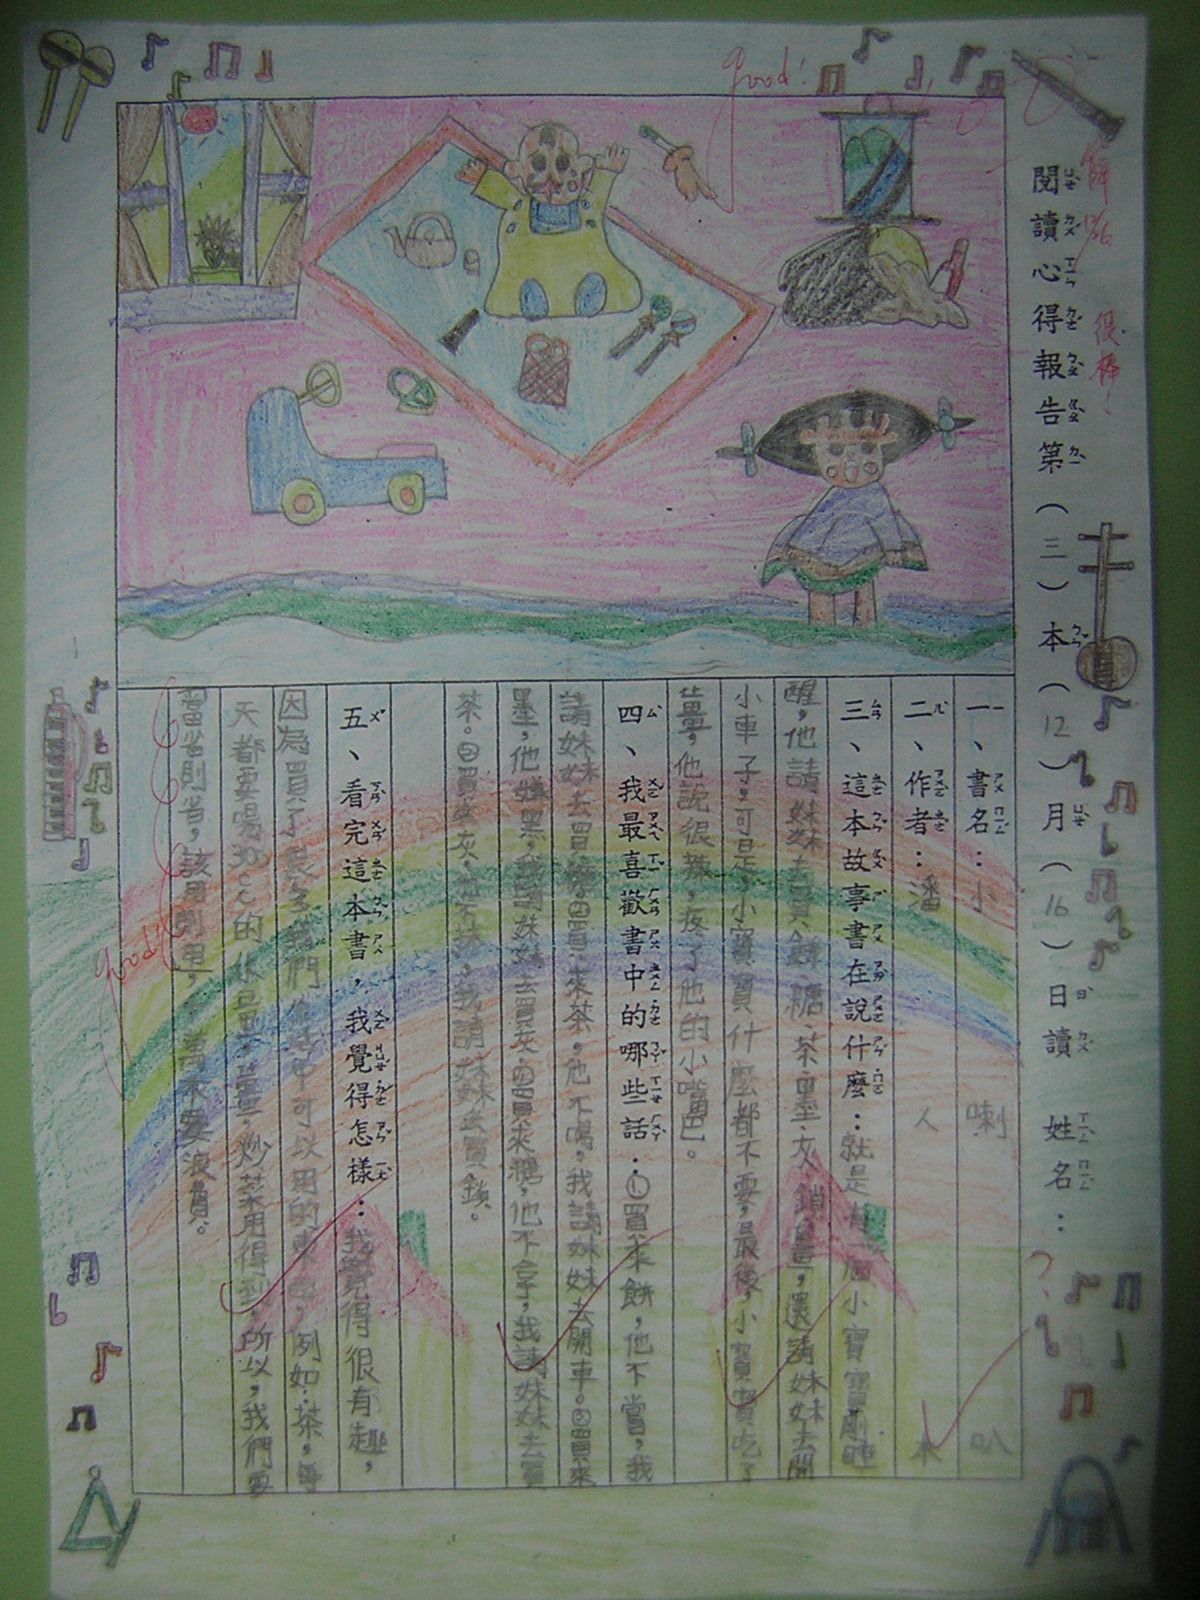 閱讀心得報告第(三)本(12)月(16)日讀 姓名:
很棒!
good!
一、書名:小喇叭
二、作者:潘人木
三、這本故事書在說什麼:就是有一個小寶寶剛睡
醒,他請妹妹去買餅、糖、茶、墨、灰、鎖、薑,還請妹妹去開
小車子,可是,小寶寶什麼都不要,最後,小寶寶吃了
薑,他說很辣,疼了他的小嘴巴。
四、我最喜歡書中的哪些話:①買來餅,他不嘗,我
請妹妹去買糖。②買來茶,他不喝,我請妹妹去開車。③買來
墨,他嫌黑,我請妹妹去買灰。④買來糖,他不拿,我請妹妹去買
茶。⑤買來灰,他不抹,我請妹妹去買鎖。
五、看完這本書,我覺得怎樣:我覺得很有趣,
因為買了很多我們生活中可以用的東西,例如:茶,每
天都要喝 的 ,薑,炒菜用得到,所以,我們要
當省則省,該用則用, 萬不要浪費。
good!